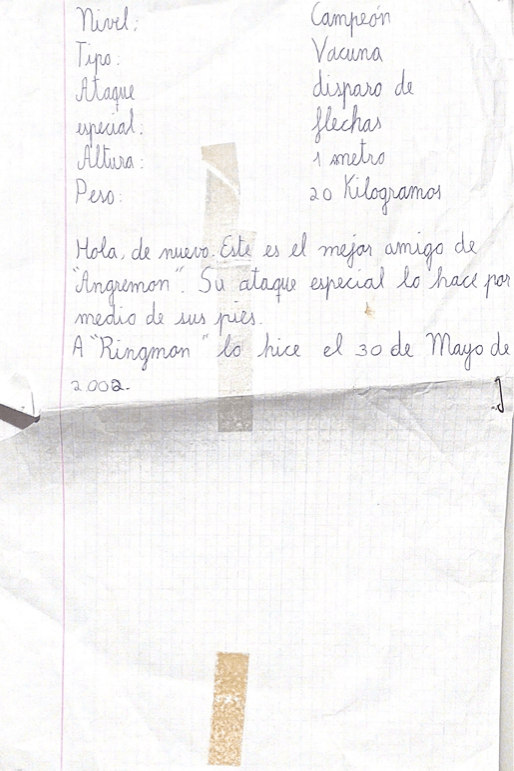 Nivel: Campeón
Tipo: Vacuna
Ataque disparo de
especial: flechas
Altura: 1 metro
Peso: 20 Kilogramos
Hola, de nuevo. Este es el mejor amigo de
"Angremon". Su ataque especial lo hace por
medio de sus pies.
A "Ringmon" lo hice el 30 de Mayo de
2002.